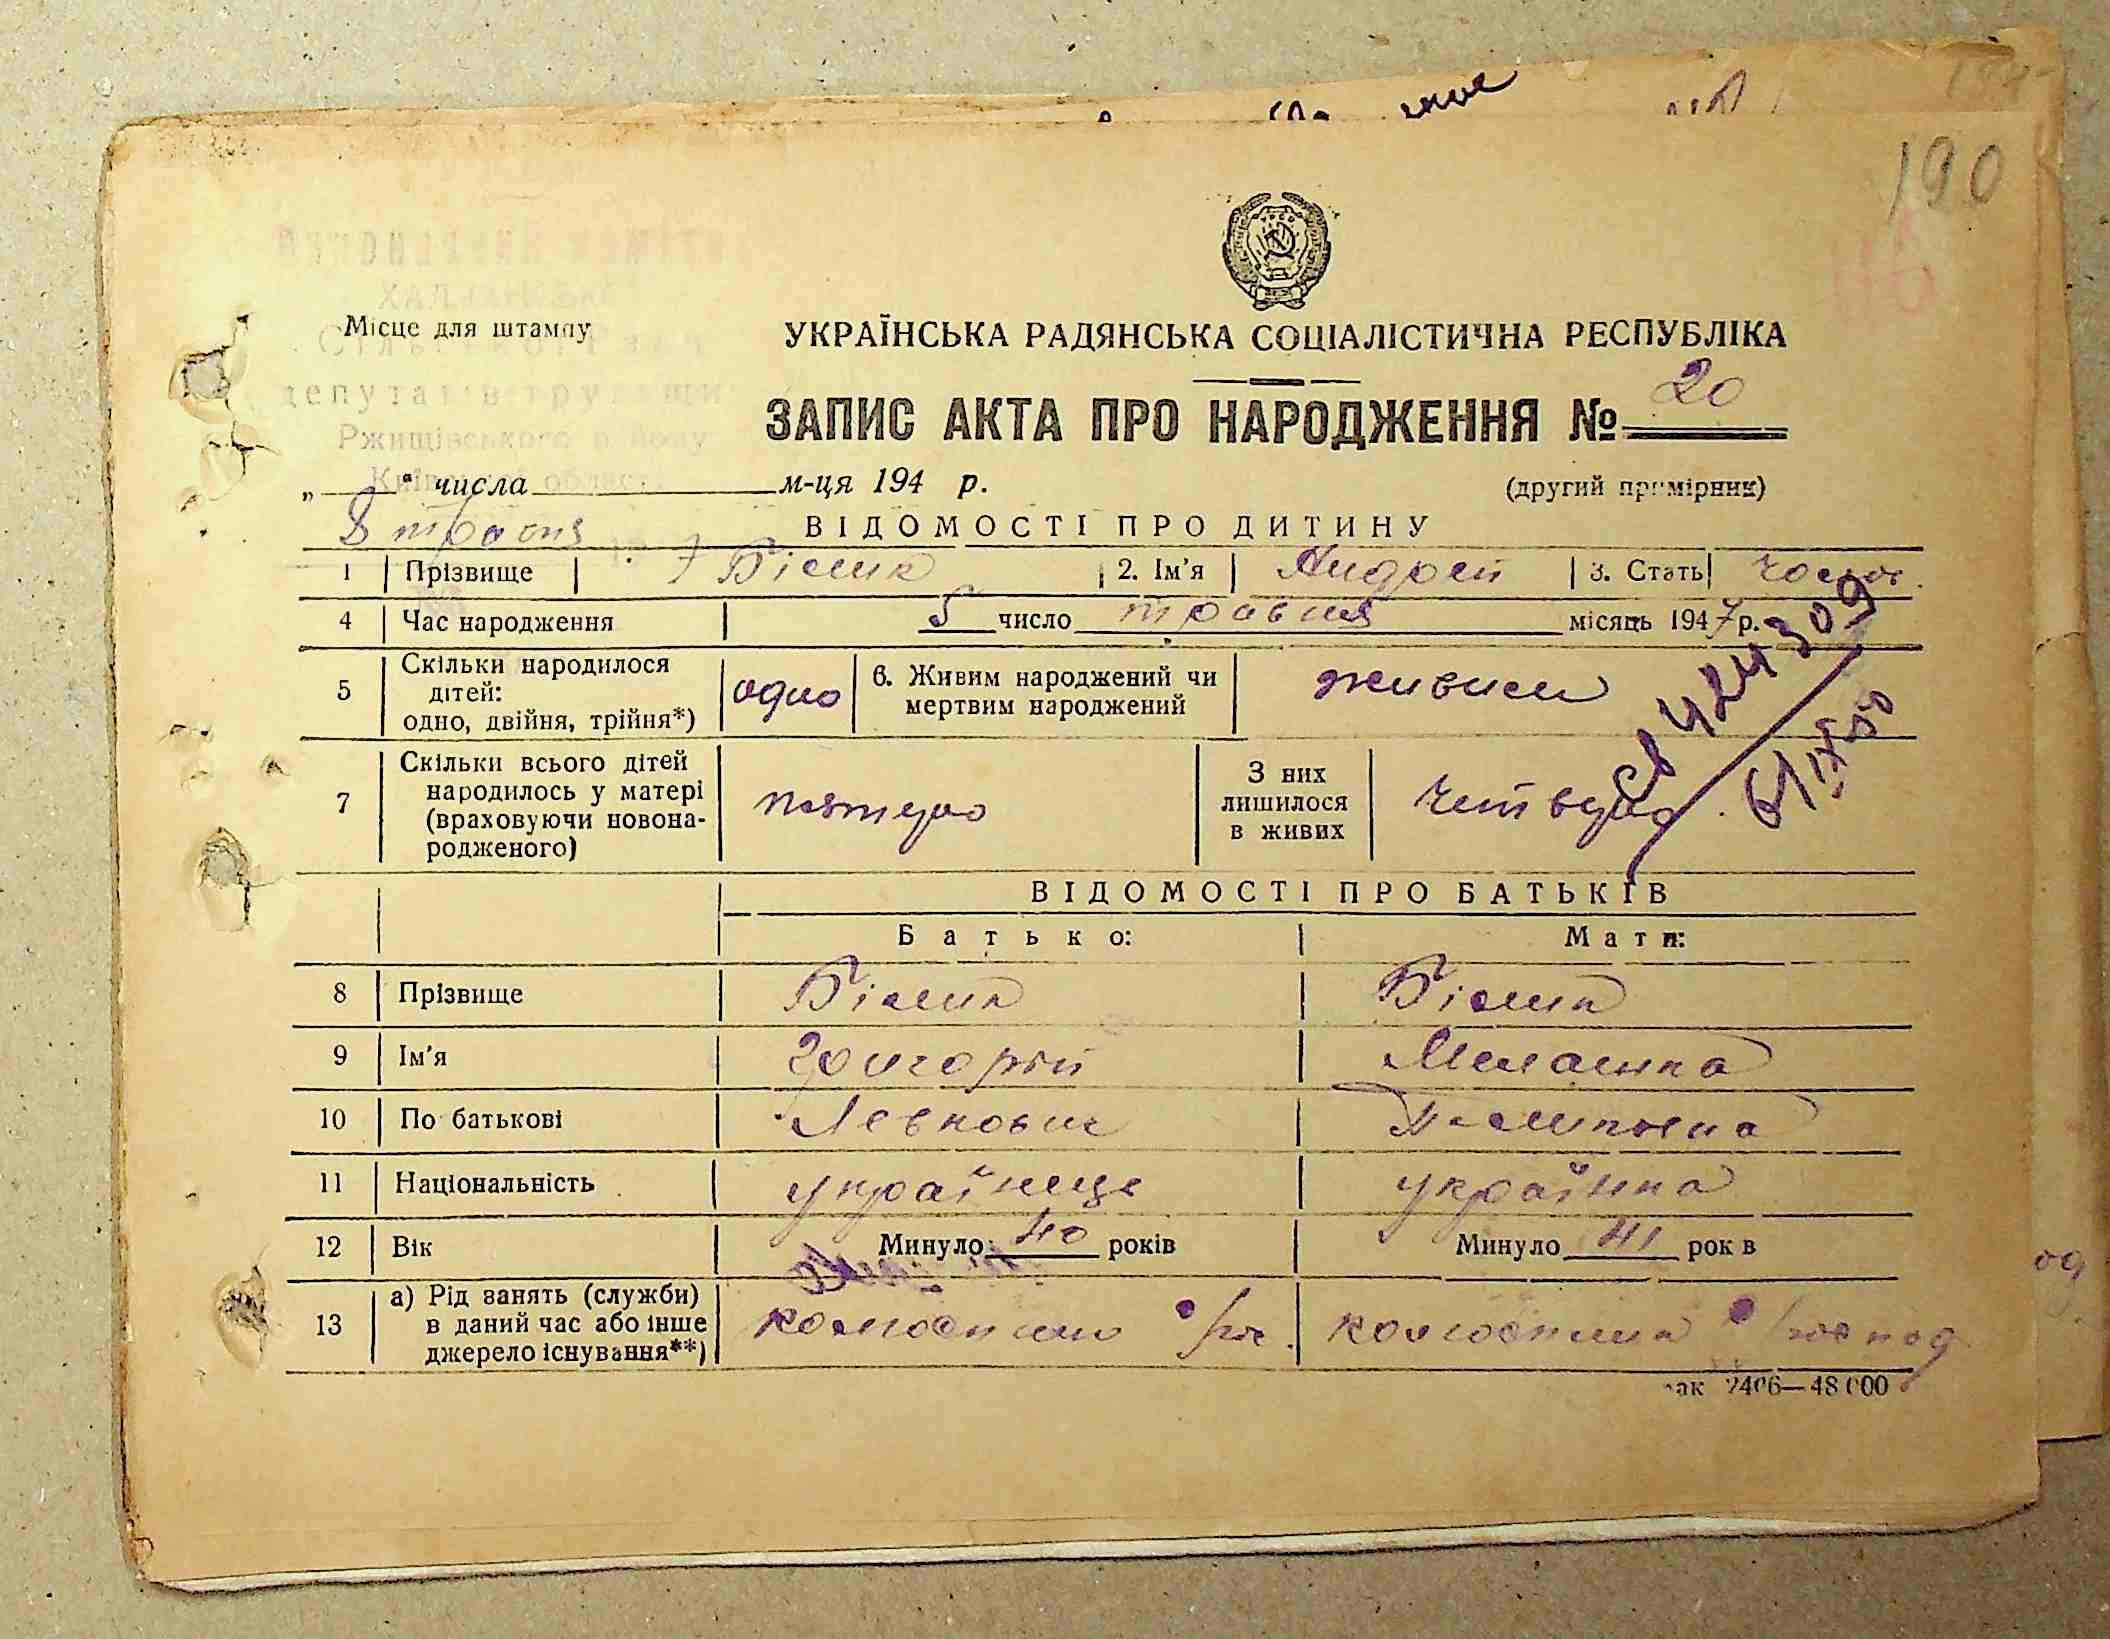 190
Місце для штампу
УКРАЇНСЬКА РАДЯНСЬКА СОЦІАЛІСТИЧНА РЕСПУБЛІКА
депутатів трудящих
Ржищівського району
Київської області
ЗАПИС АКТА ПРО НАРОДЖЕННЯ № 20
„ " числа м-ця 194 р. (другий примірник)
8 травня
ВІДОМОСТІ ПРО ДИТИНУ
1 Прізвище Білик 2. Ім'я Андрей 3. Стать
4 Час народження 5 число травня місяць 1947 р.
5 Скільки народилося дітей: одно, двійня, трійня*) одно 6. Живим народжений чи мертвим народжений живим
7 Скільки всього дітей народилось у матері (враховуючи новонародженого) пятеро З них лишилося в живих четверо
424309
6/IX 50
ВІДОМОСТІ ПРО БАТЬКІВ
Батько: Мати:
8 Прізвище Білик Білик
9 Ім'я Григорій Мелашка
10 По батькові Левкович
11 Національність українець українка
12 Вік Минуло 40 років Минуло 41 рок в
13 а) Рід занять (служби) в даний час або інше джерело існування**)
зак 2406—48 000